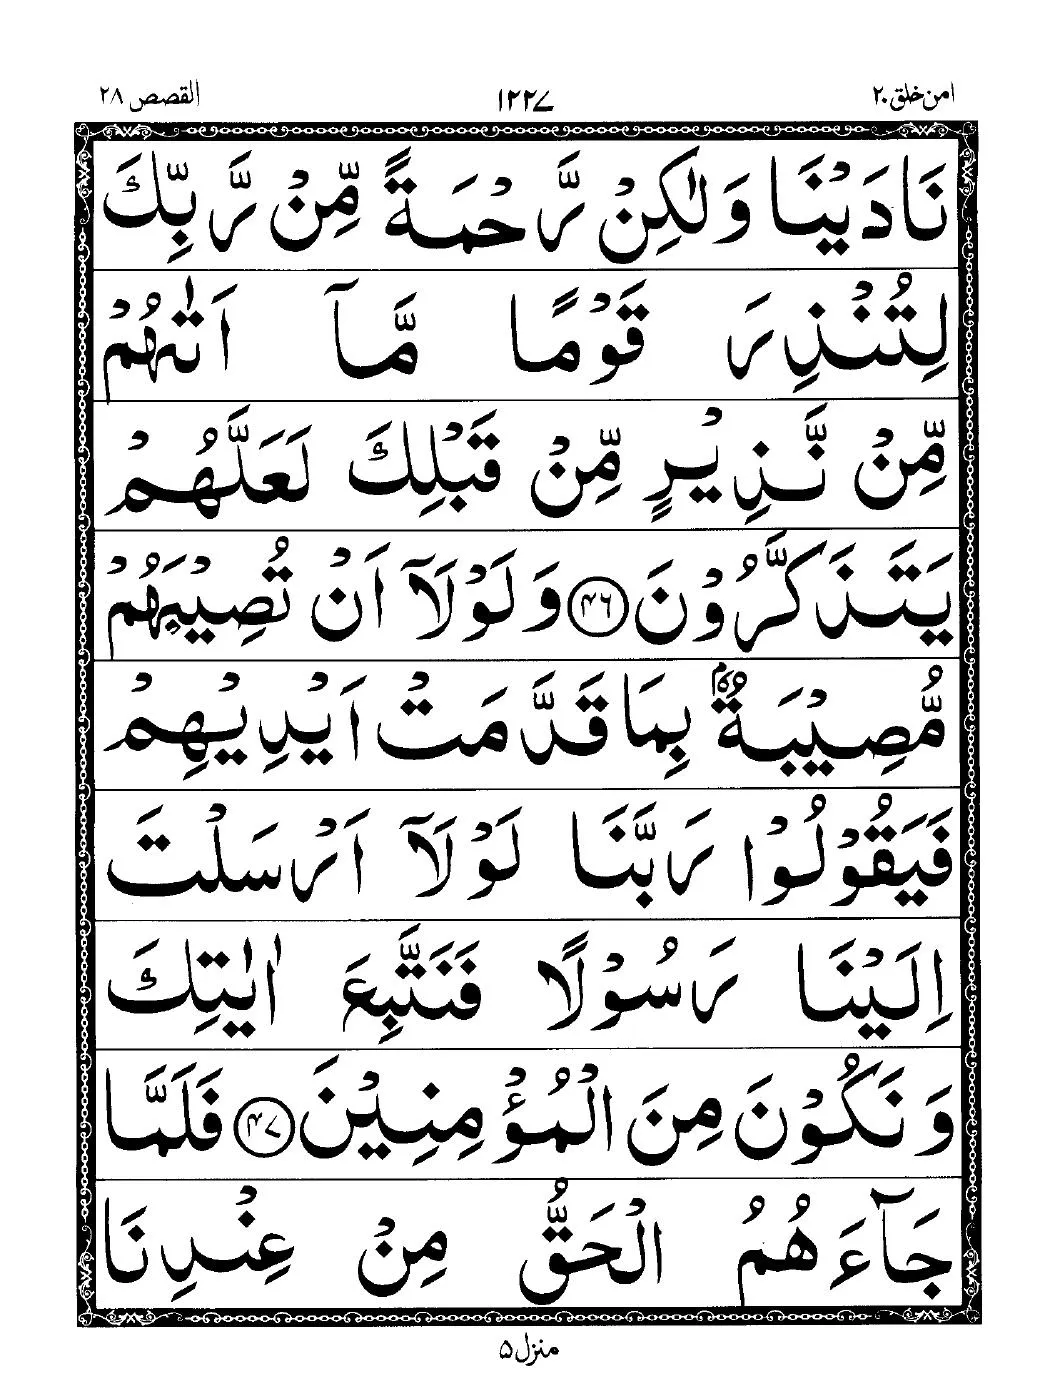 امن خلق ٢٠ ١٢٢٧ القصص ٢٨
نَادَيْنَا وَلٰكِنْ رَّحْمَةً مِّنْ رَّبِّكَ
لِتُنْذِرَ قَوْمًا مَّآ اَتٰىهُمْ
مِّنْ نَّذِيْرٍ مِّنْ قَبْلِكَ لَعَلَّهُمْ
يَتَذَكَّرُوْنَ ﴿٤٦﴾ وَلَوْلَآ اَنْ تُصِيْبَهُمْ
مُّصِيْبَةٌۢ بِمَا قَدَّمَتْ اَيْدِيْهِمْ
فَيَقُوْلُوْا رَبَّنَا لَوْلَآ اَرْسَلْتَ
اِلَيْنَا رَسُوْلًا فَنَتَّبِعَ اٰيٰتِكَ
وَنَكُوْنَ مِنَ الْمُؤْمِنِيْنَ ﴿٤٧﴾ فَلَمَّا
جَآءَهُمُ الْحَقُّ مِنْ عِنْدِنَا
منزل ۵